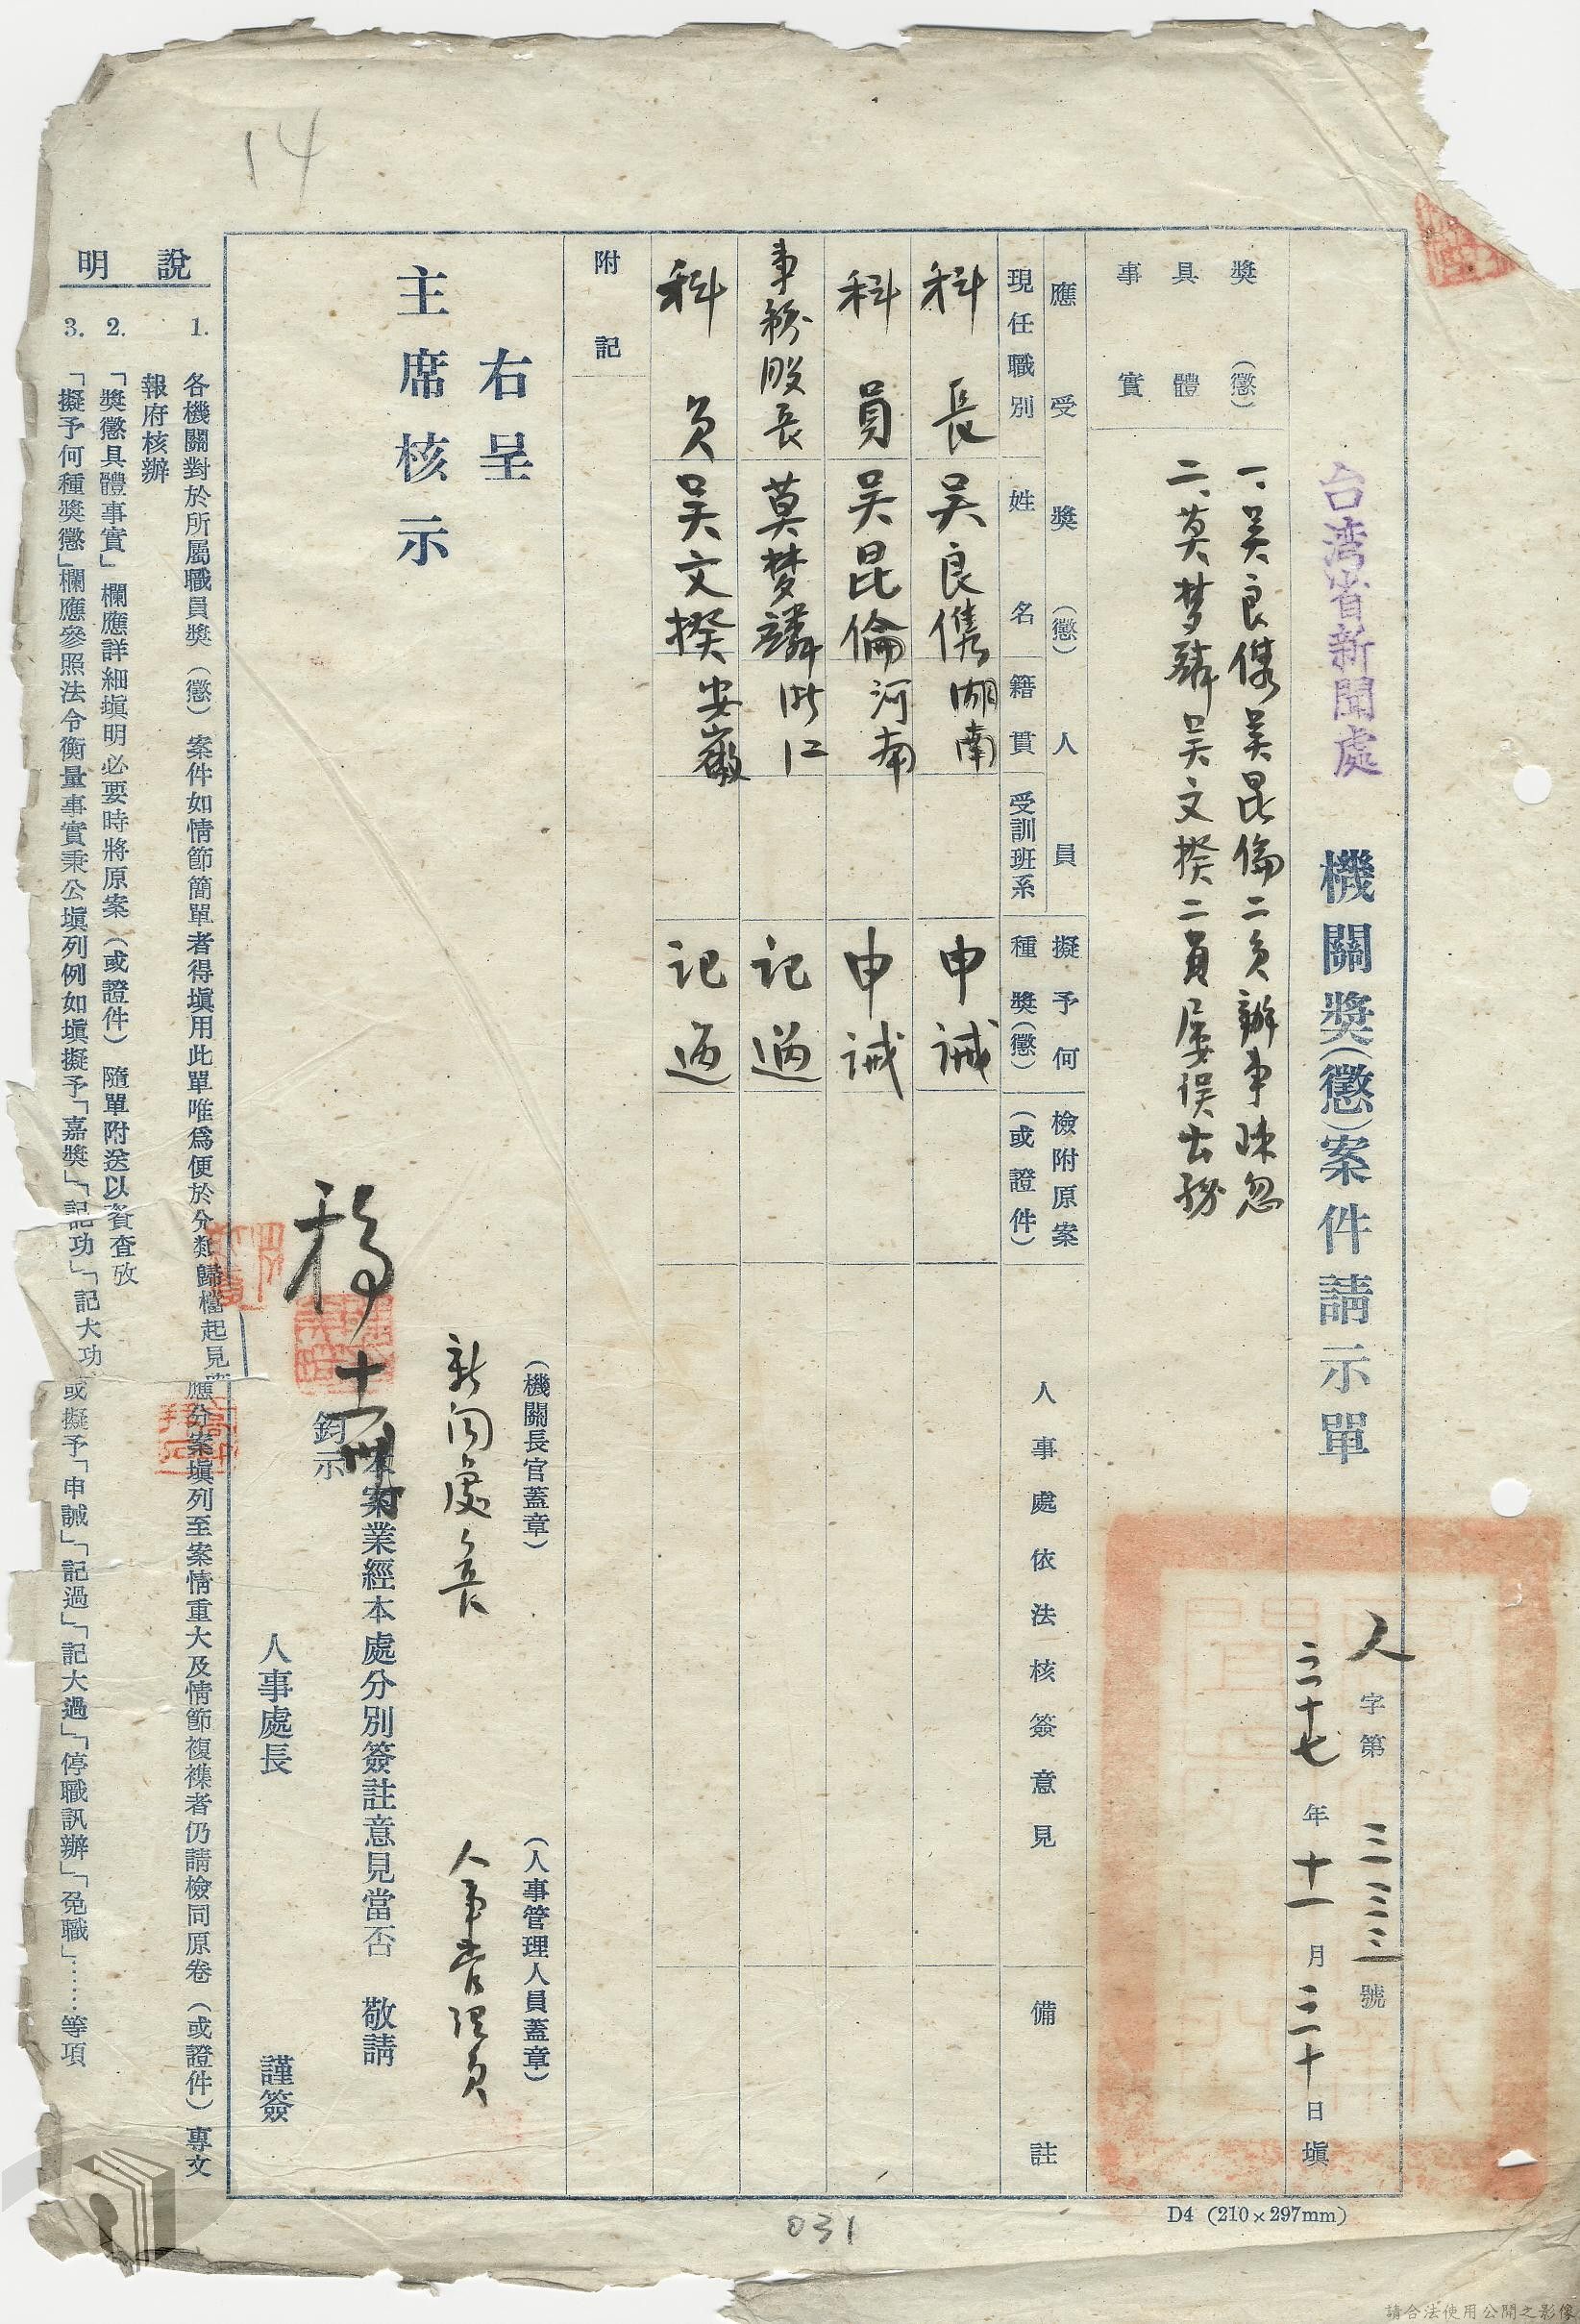 14
台湾省新聞處 機關奬(懲)案件請示單
人字第三一三三號
三十七年十一月三十日填
奬(懲)
具體
事實
一、吴良儁吴昆倫二員辦事疎忽
二、莫梦麟吴文揆二員屡误公務
應受奬(懲)人員
現任職別
姓名
籍貫
受訓班系
擬予何
種奬(懲)
檢附原案
(或證件)
人事處依法核簽意見
備註
科長 吴良儁 湖南 申誡
科員 吴昆倫 河南 申誡
事務股長 莫梦麟 浙江 记過
科員 吴文揆 安徽 记過
附記
右呈
主席核示
(機關長官蓋章)
新闻處長
(人事管理人員蓋章)
人事管理員
案業經本處分別簽註意見當否 敬請
鈞示
人事處長 謹簽
說明
1. 各機關對於所屬職員奬(懲)案件如情節簡單者得塡用此單唯爲便於分類歸檔起見應分案塡列至案情重大及情節複襍者仍請檢同原卷(或證件)專文
報府核辦
2. 「奬懲具體事實」欄應詳細塡明必要時將原案(或證件)隨單附送以資查攷
3. 「擬予何種奬懲」欄應參照法令衡量事實秉公塡列例如塡擬予「嘉奬」「記功」「記大功」或擬予「申誡」「記過」「記大過」「停職訊辦」「免職」……等項
D4 (210×297mm)
031
請合法使用公開之影像